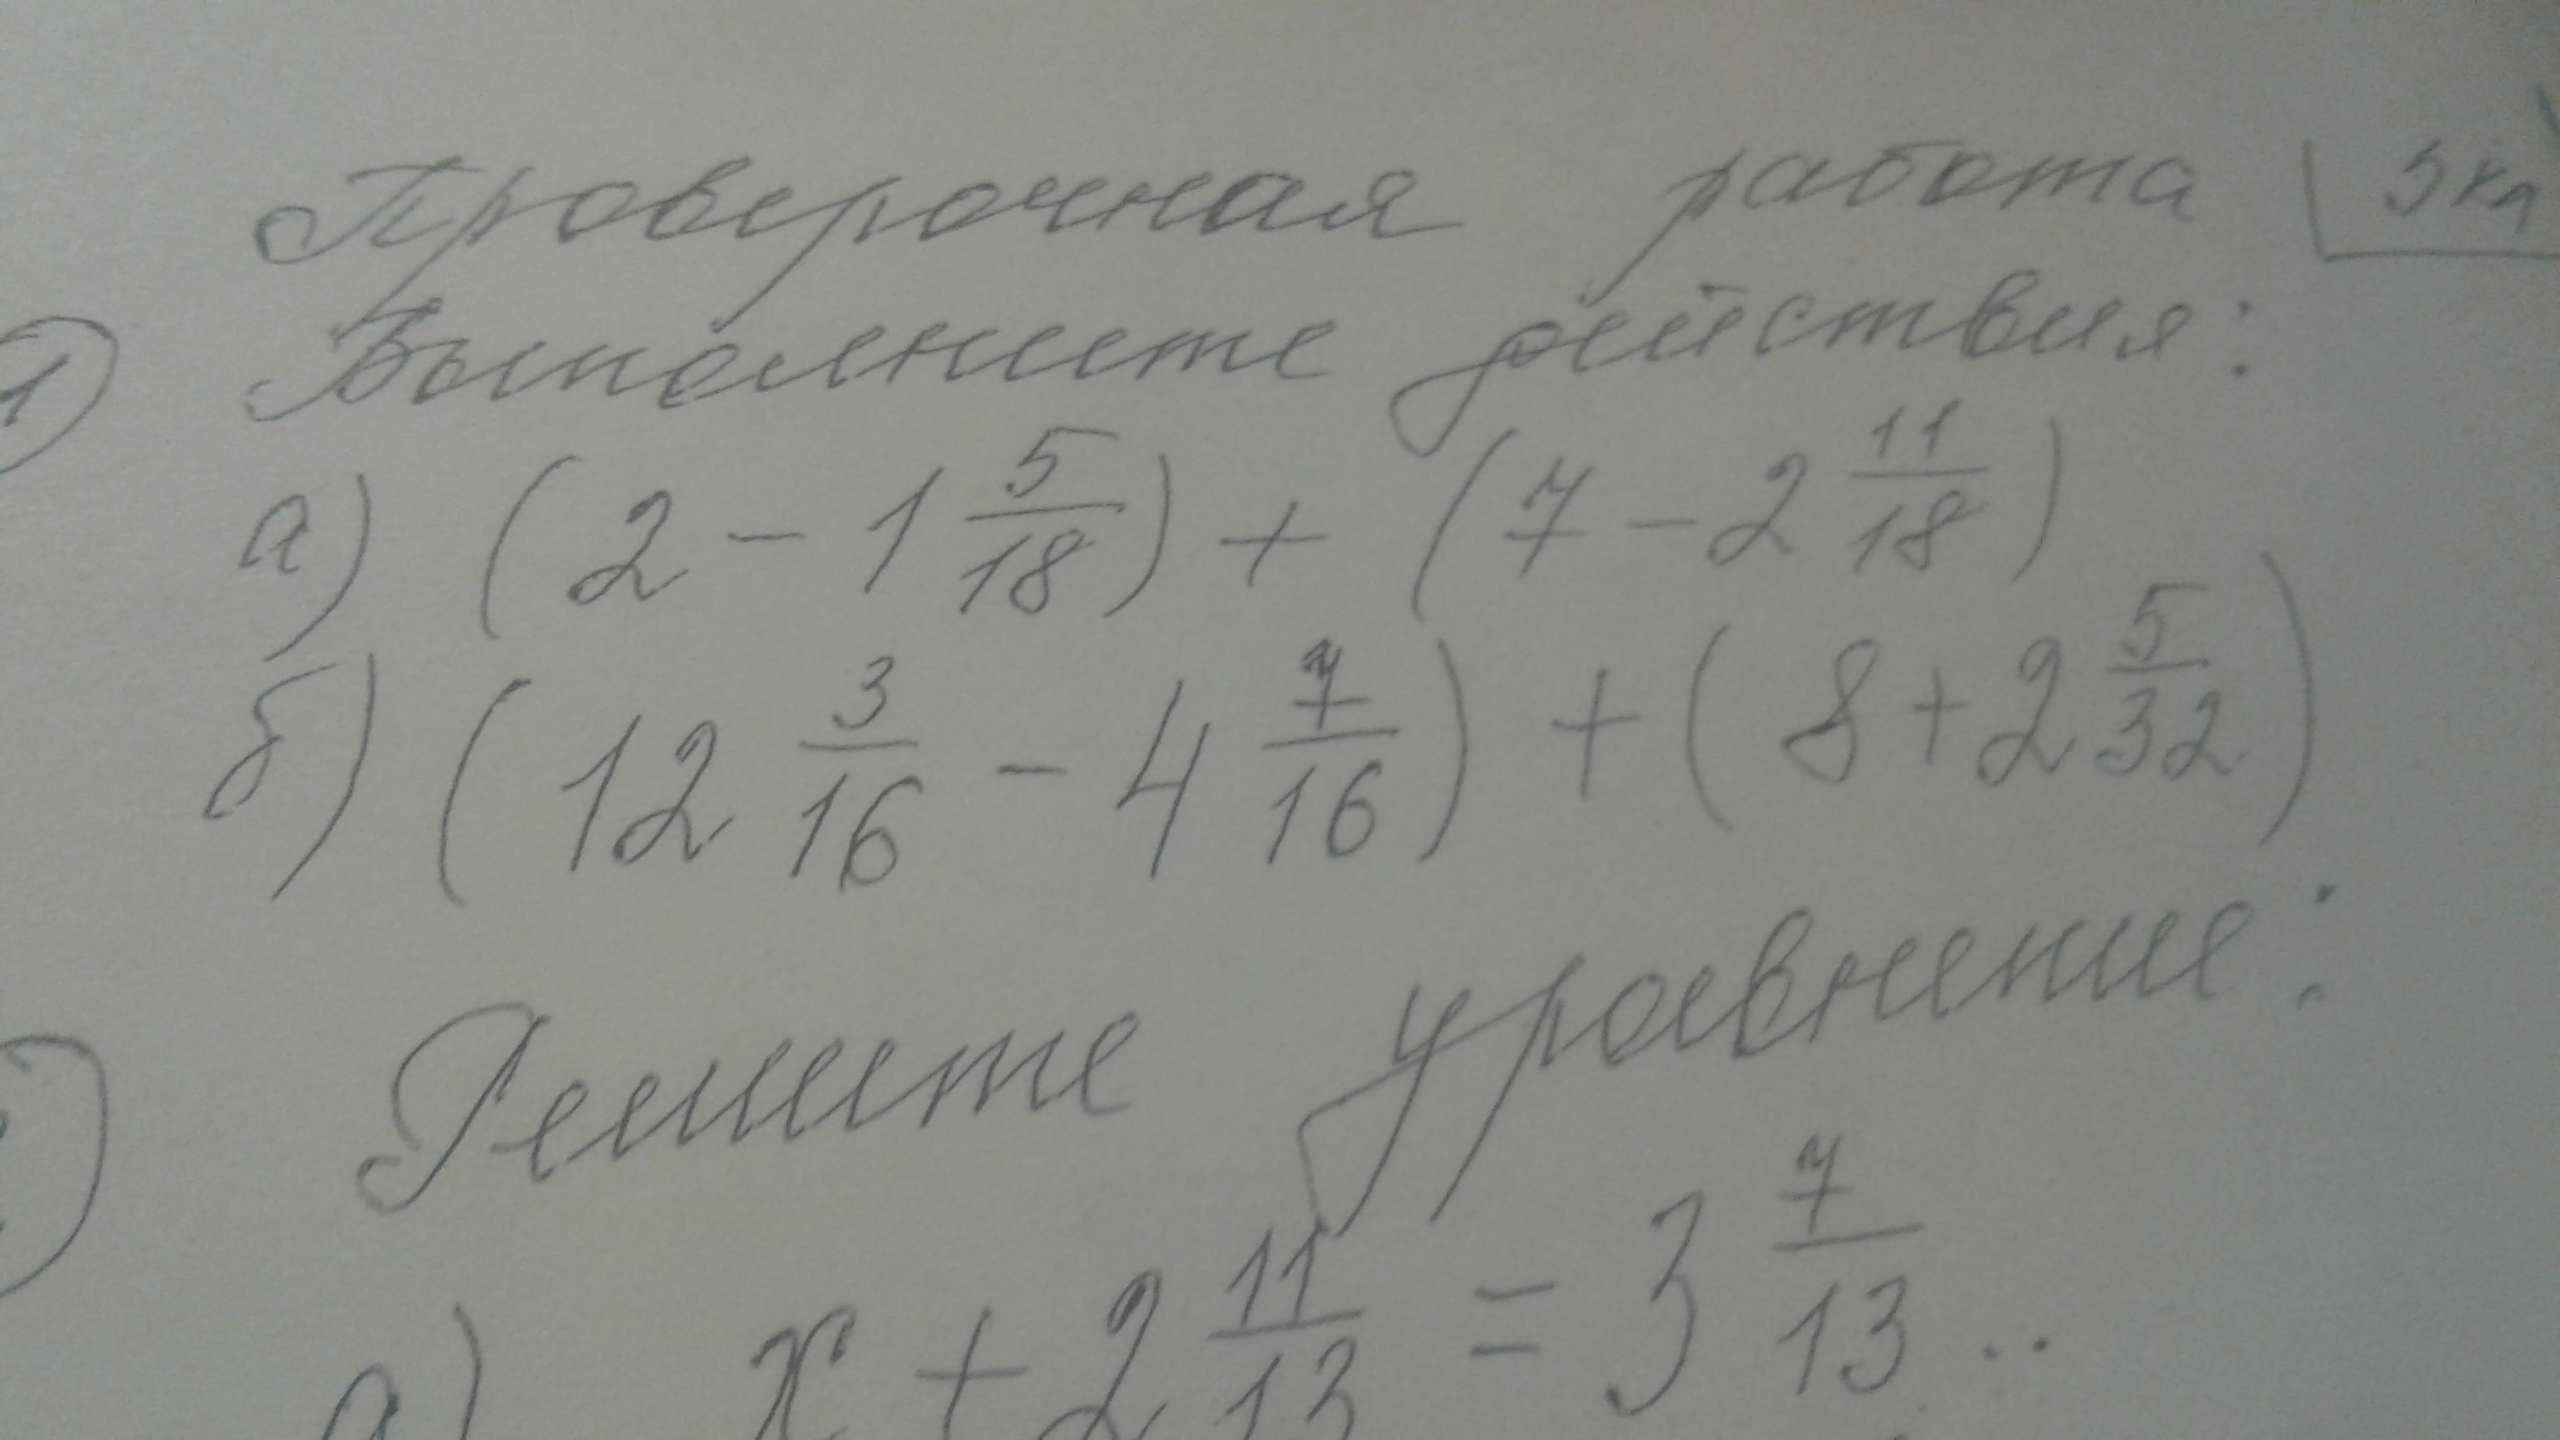 Проверочная работа 5 кл
1) Выполните действия:
а) (2 - 1 5/18) + (7 - 2 11/18)
б) (12 3/16 - 4 7/16) + (8 + 2 5/32)
Решите уравнение:
а) x + 2 11/13 = 3 7/13